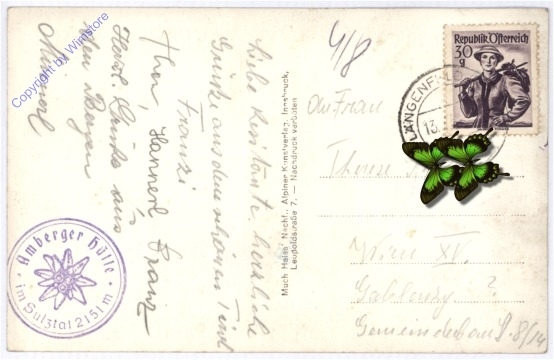 Liebe Resitante, herzliche
Grüsse aus dem schönen Tirol
Franzi
Ihr, Hannerl, Franz
Herzl. Grüsse aus
den Bergen
4/8
An Frau
Therese
Wien XV.
Gablenzg ?
Gemeindebau P. 8/14
Republik Österreich
30
g
LÄNGENF
13.
Much Heiss' Nachf., Alpiner Kunstverlag, Innsbruck,
Leopoldstraße 7. — Nachdruck verboten
Amberger Hütte
im Sulztal 2151 m
Copyright by Wimstore